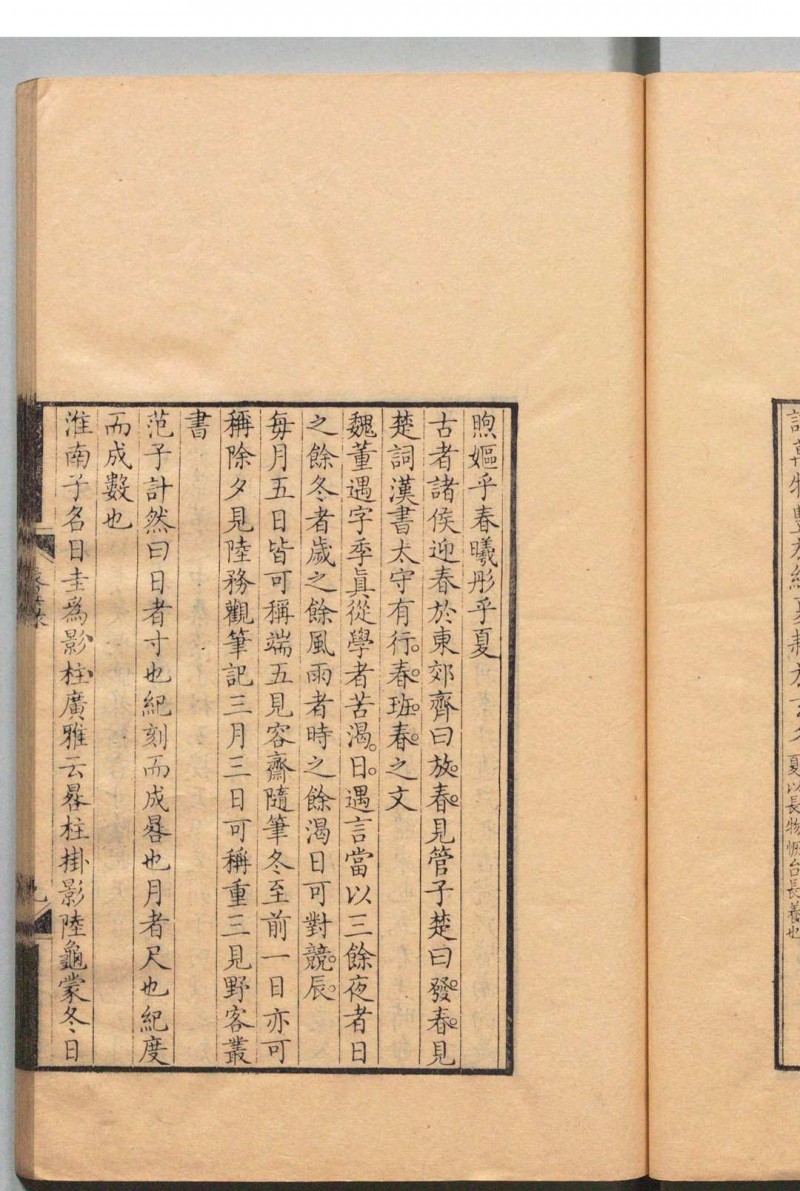 煦嫗乎春曦彤乎夏
古者諸侯迎春於東郊齊曰放春見管子楚曰發春見
楚詞漢書太守有行春班春之文
魏董遇字季真從學者苦渴日遇言當以三餘夜者日
之餘冬者歲之餘風雨者時之餘渴日可對競辰
每月五日皆可稱端五見容齋隨筆冬至前一日亦可
稱除夕見陸務觀筆記三月三日可稱重三見野客叢
書
范子計然曰日者寸也紀刻而成晷也月者尺也紀度
而成數也
淮南子名日圭為影柱廣雅云晷柱掛影陸龜蒙冬日
九
夏以長物
台長養也